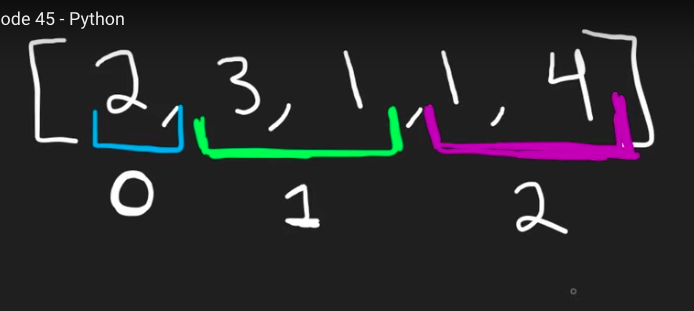 ode 45 - Python
[2, 3, 1, 1, 4]
0 1 2